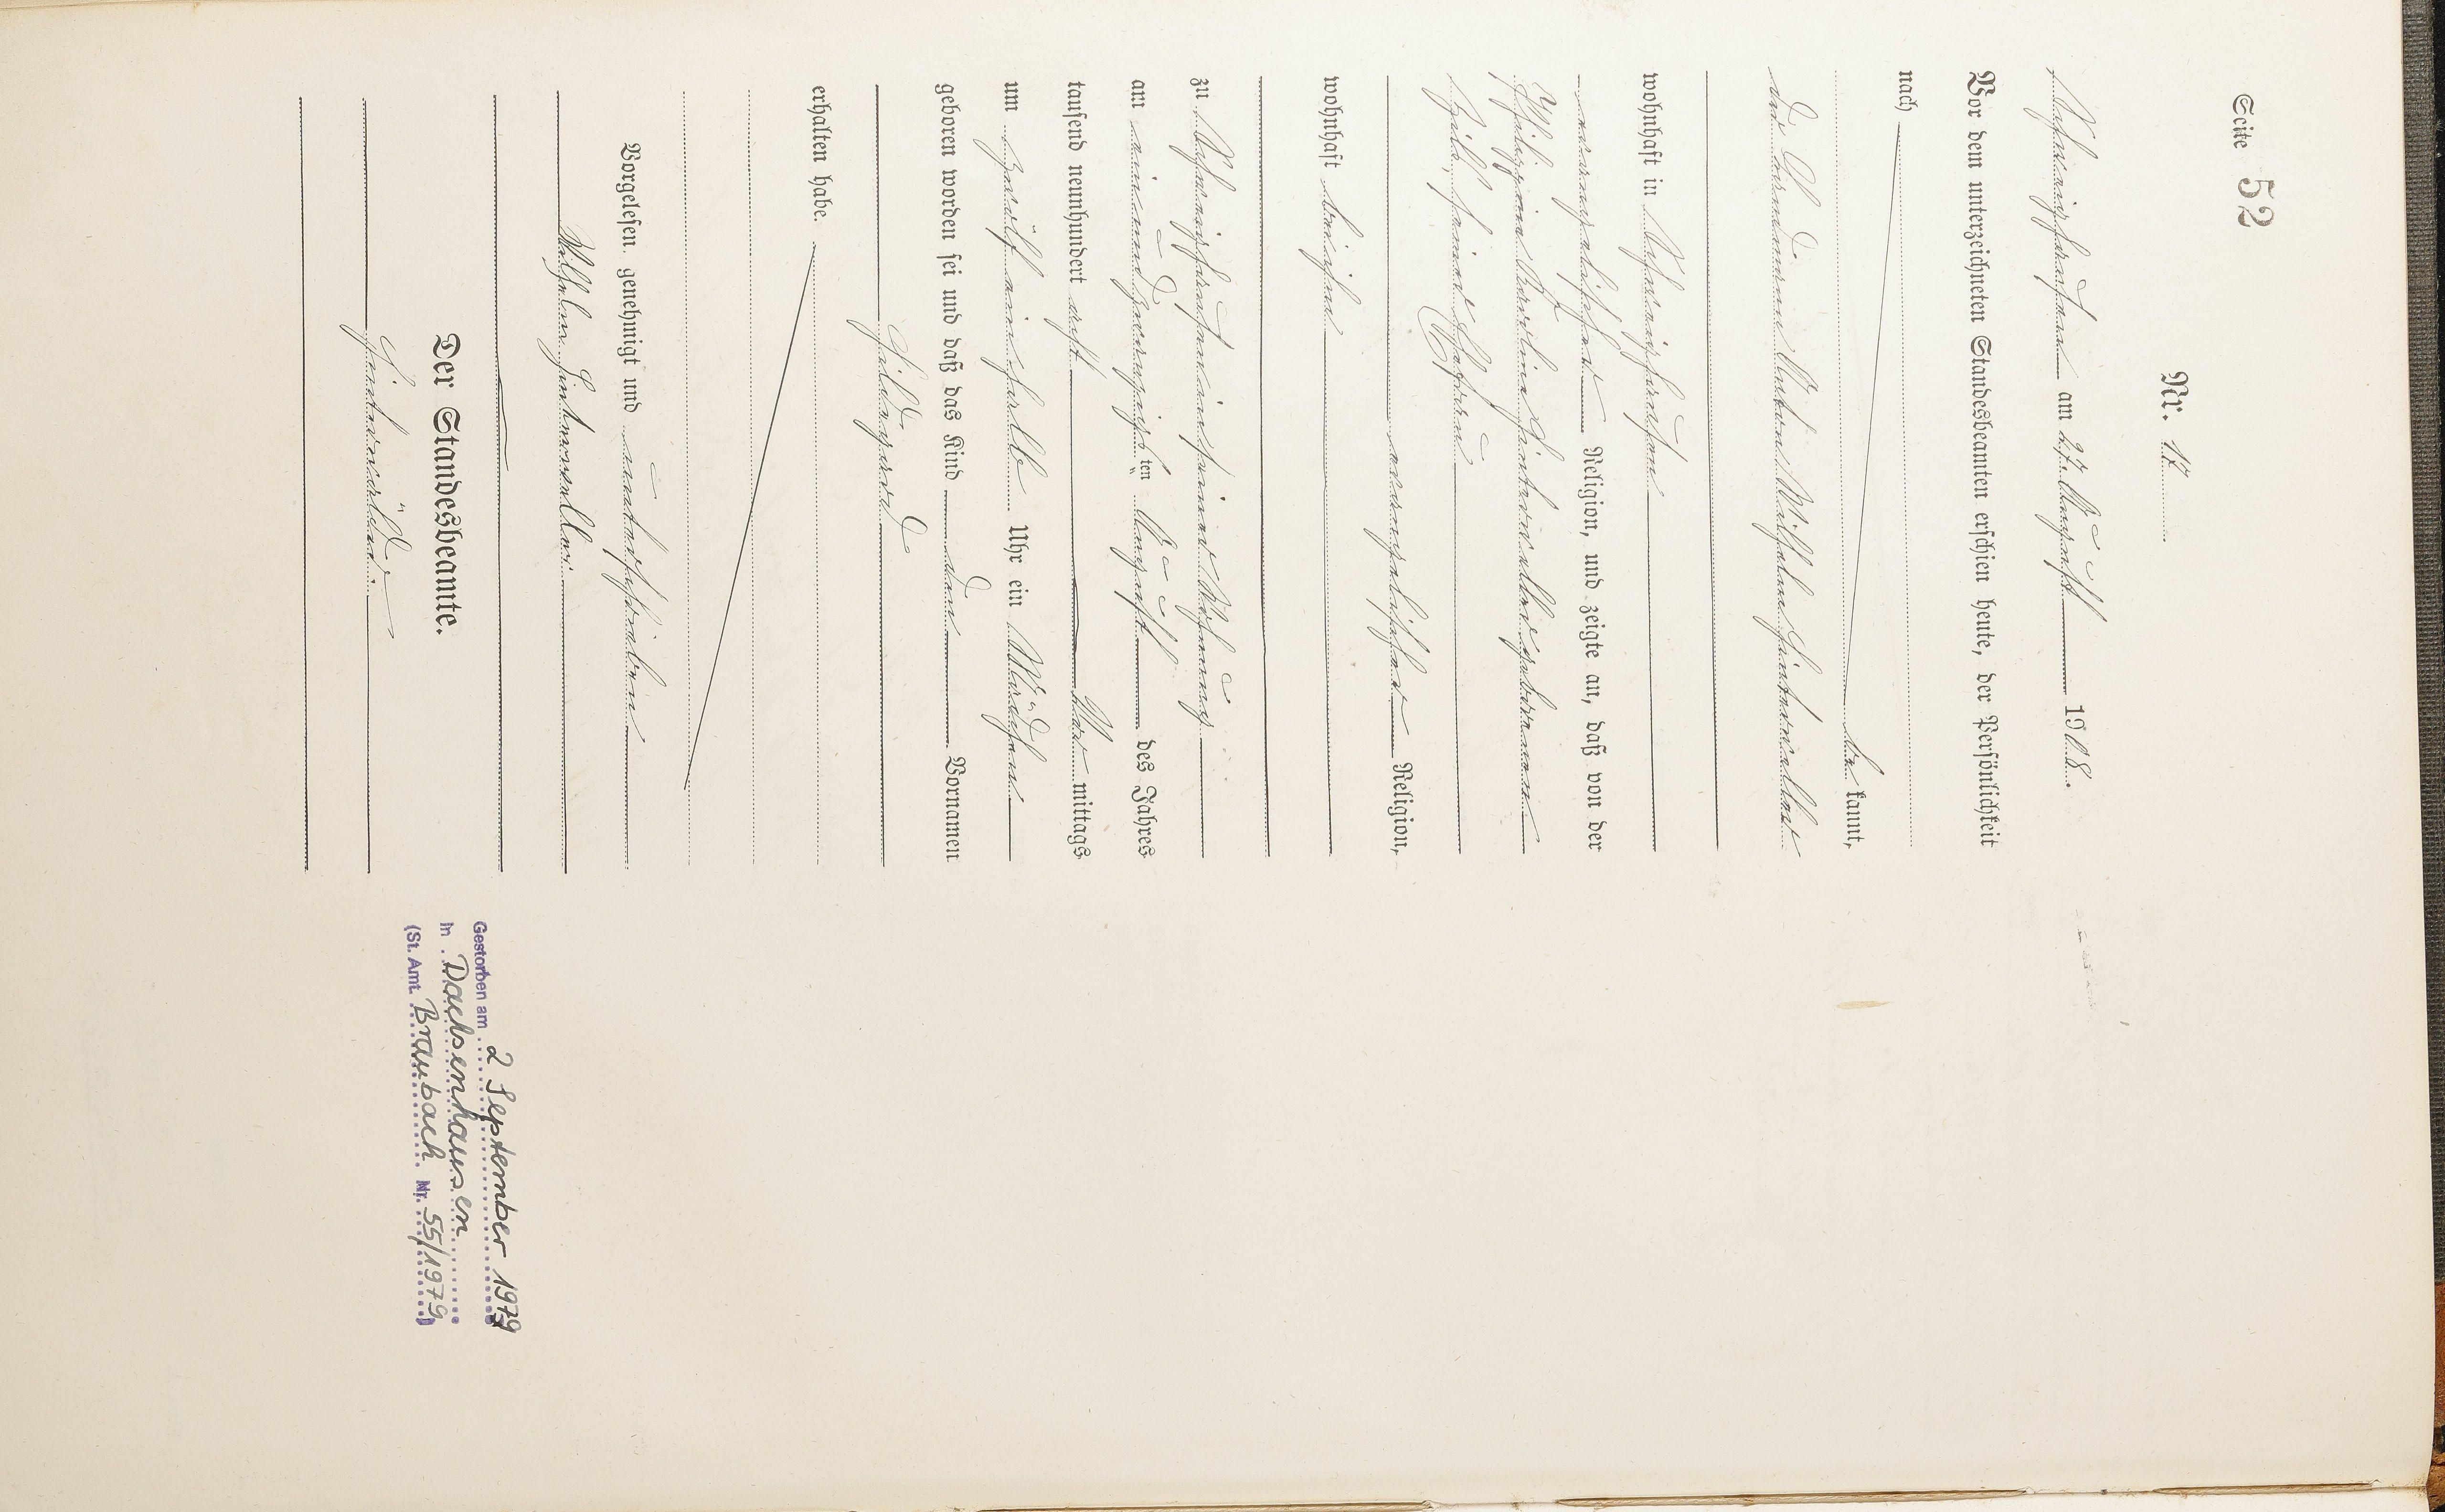 Seite 52
Nr. 17
Schweighausen am 27. August 1908.
Vor dem unterzeichneten Standesbeamten erschien heute, der Persönlichkeit
nach
be kannt,
der Wilhelm
wohnhaft in Schweighausen
evangelischer Religion, und zeigte an, daß von der
geborenen
seiner Ehefrau
evangelischer Religion,
wohnhaft bei ihm
zu Schweighausen in seiner Wohnung
am ein und zwanzig ten August des Jahres
tausend neunhundert acht mittags
um zwölf ein halb Uhr ein Mädchen
geboren worden sei und daß das Kind den Vornamen
Hildegard
erhalten habe.
Vorgelesen, genehmigt und unterschrieben
Wilhelm
Der Standesbeamte.
Gestorben am 2 September 1979
in Dachsenhausen
(St. Amt Braubach Nr. 55/1979)